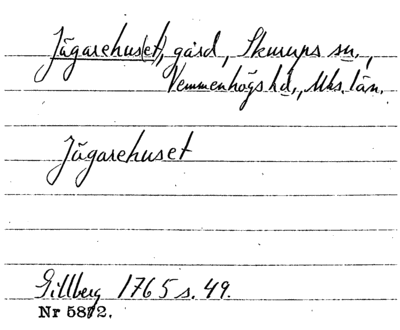 Jägarehus(et), gård, Skurups sn.,
Vemmenhögs hd., Mhs. län.
Jägarehuset
Gillberg 1765 s. 49.
Nr 5872.